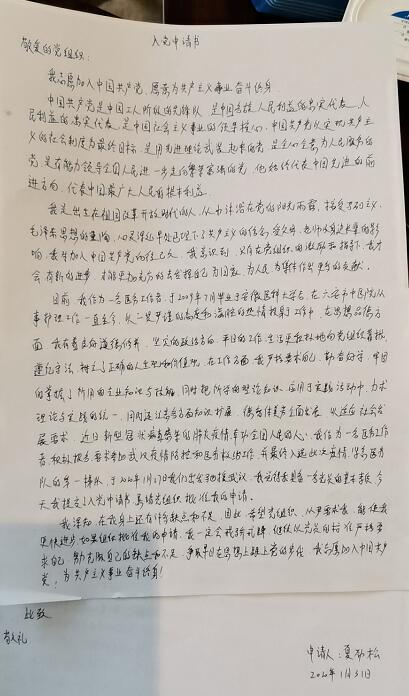 入党申请书
敬爱的党组织：
我志愿加入中国共产党，愿意为共产主义事业奋斗终身。
中国共产党是中国工人阶级的先锋队，是中国各族人民利益的忠实代表，人
民利益的忠实代表，是中国社会主义事业的领导核心。中国共产党以实现共产主
义的社会制度为最终目标，是用先进理论武装起来的党，是全心全意为人民服务的
党，是有能力领导全国人民进一步走向繁荣富强的党，他始终代表中国先进的前
进方向，代表中国最广大人民的根本利益。
我是出生在祖国改革开放时代的人，从小沐浴在党的阳光雨露，接受
毛泽东思想的熏陶，心灵深处早已埋下了共产主义的
响，我要加入中国共产党的 我意识到，只有在党组织的激励和指导下，我才
会有新的进步，才能更加充分的去发挥自己 为人民为集体作出更多的贡献。
目前，我作为一名医务工作者，于2009年7月毕业于安徽医科大学后，在六安市中医院从
事护理工作一直至今，从 的态度和 的热情投身于工作中，在思想品德方
面，我有着良好道德修养，坚定的政治 ，平日的工作、生活里积极地向党组织靠拢，
遵纪守法，树立了正确的人生观和价值观，在工作方面，我严格要求自己，勤奋好学，牢固
的掌握了所用的专业知识与技能，同时把所学的理论知识应用于实践活动中，力求
理论与实践的统一，同时还注意各方面知识扩展，
展要求。近日新型冠状病毒感染的肺炎疫情牵动全国人民的人心，我作为一名医务工作
者，积极报名要求参加武汉疫情防控和医务救治工作，并最终入选此次 医务
队的第一梯队，于2020年1月27日我们出发支援武汉。 今
天我提交了入党申请书，恳请党组织批准我的申请。
我深知，在我身上还有许多缺点和不足，因此，希望党组织，从严要求我，能使我
更快进步。如果组织批准我的申请，我一定会戒骄戒躁，继续以党员的标准严格要
求自己，努力克服自己的缺点和不足，争取早日在思想上跟上党的步伐，我志愿加入中国共产
党，为共产主义事业奋斗终身！
此致
敬礼
申请人：夏 松
2020年1月31日